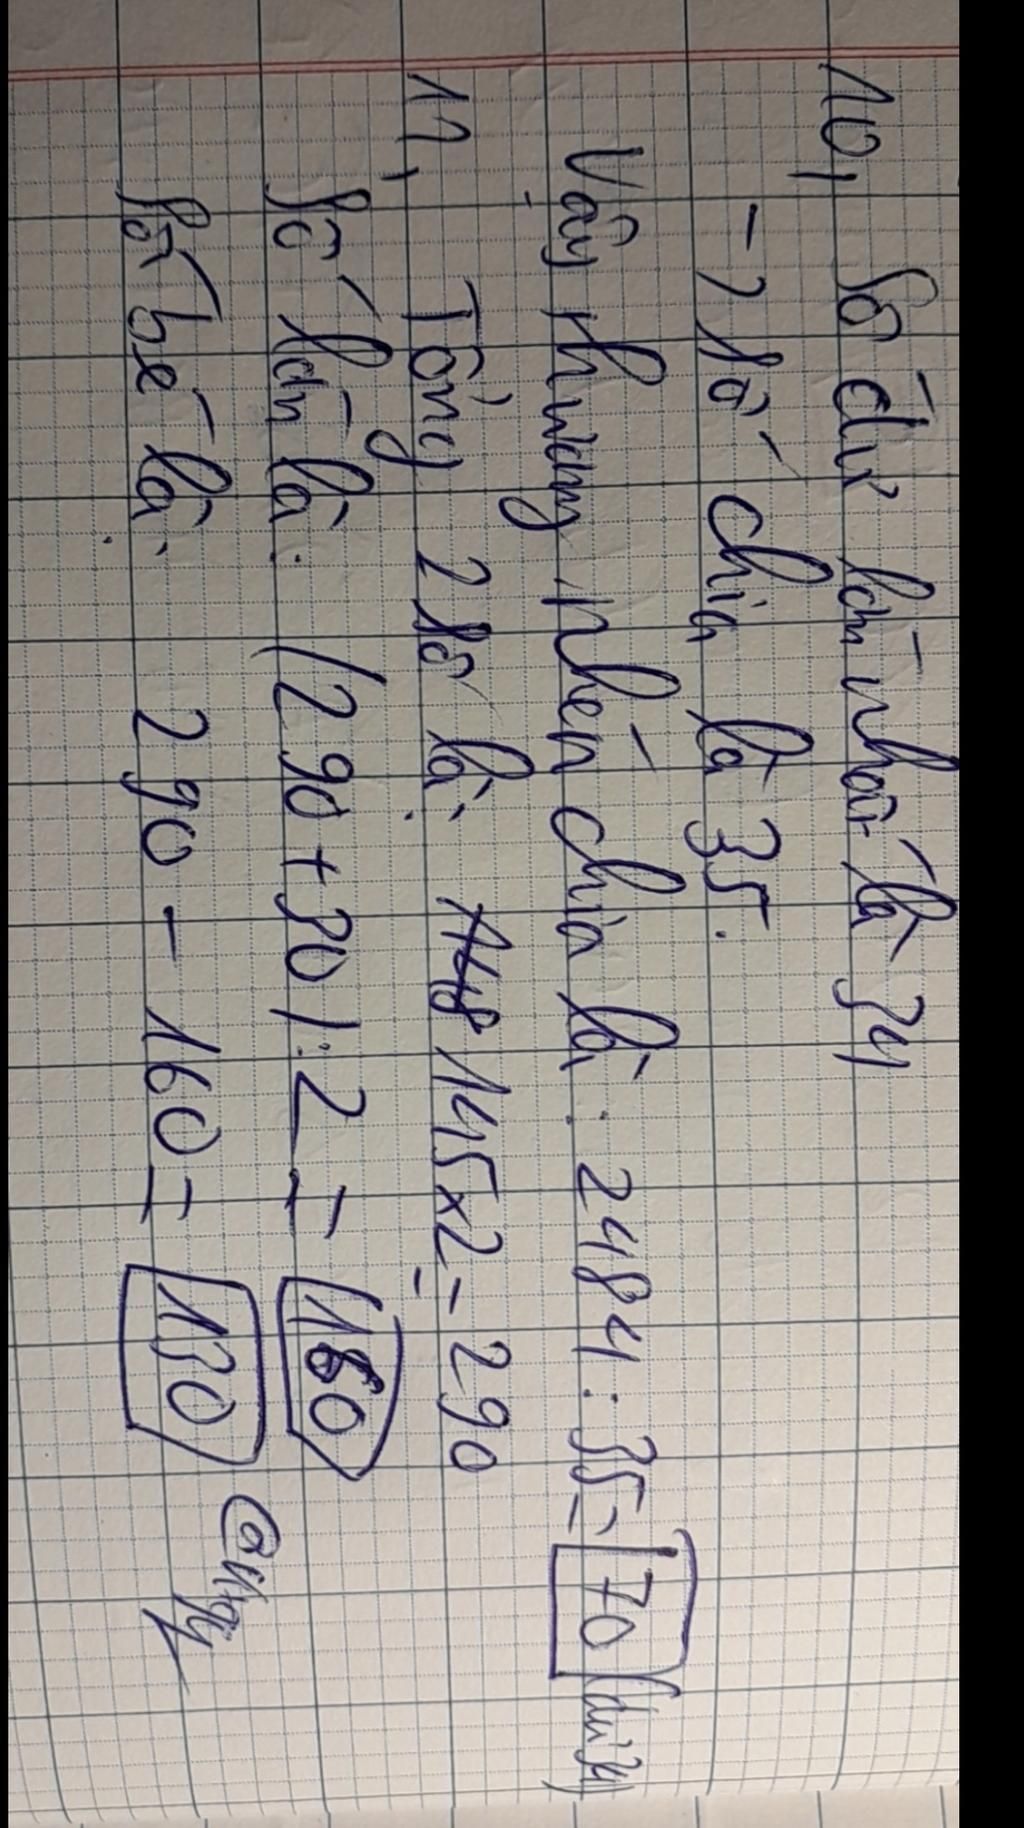 10, Số dư lớn nhất là 34
-> Số chia là 35.
Vậy thương phép chia là: 2484 : 35 = 70 (dư 34)
11, Tổng 2 số là: 145 x 2 = 290
Số lớn là: (290 + 30) : 2 = 160
Số bé là: 290 - 160 = 130